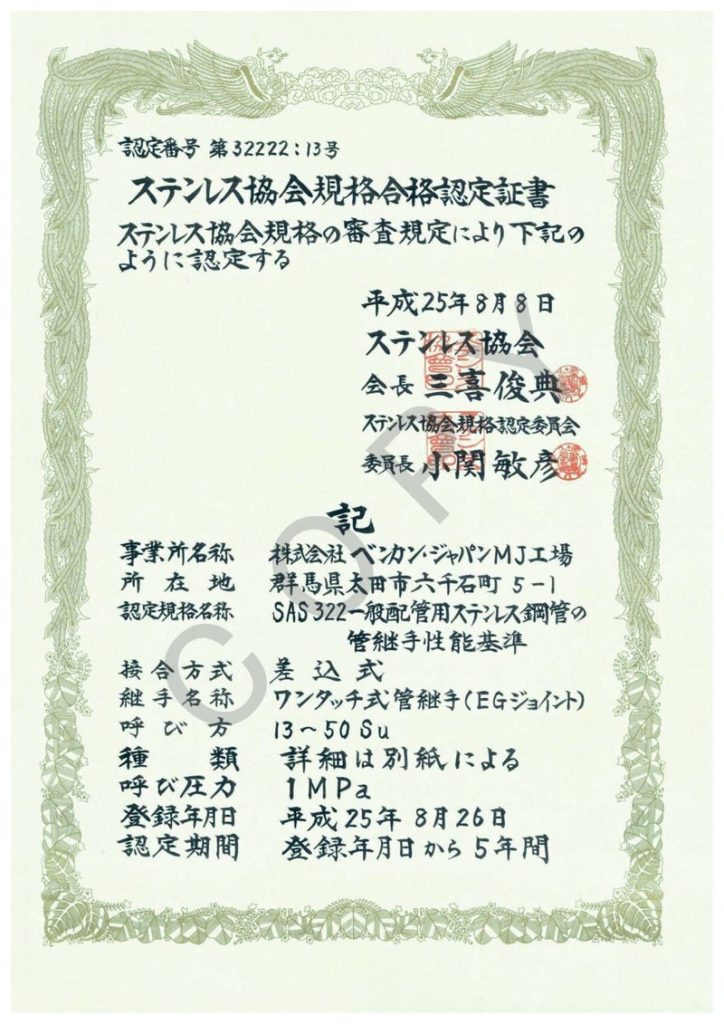 認定番号 第32222:13号
ステンレス協会規格合格認定証書
ステンレス協会規格の審査規定により下記の
ように認定する
平成25年8月8日
ステンレス協会
会長 三喜俊典
ステンレス協会規格認定委員会
委員長 小関敏彦
記
事業所名称 株式会社 ベンカン・ジャパンMJ工場
所在地 群馬県太田市六千石町 5-1
認定規格名称 SAS322一般配管用ステンレス鋼管の
管継手性能基準
接合方式 差込式
継手名称 ワンタッチ式管継手(EGジョイント)
呼び方 13~50Su
種類 詳細は別紙による
呼び圧力 1MPa
登録年月日 平成25年 8月26日
認定期間 登録年月日から5年間
COPY